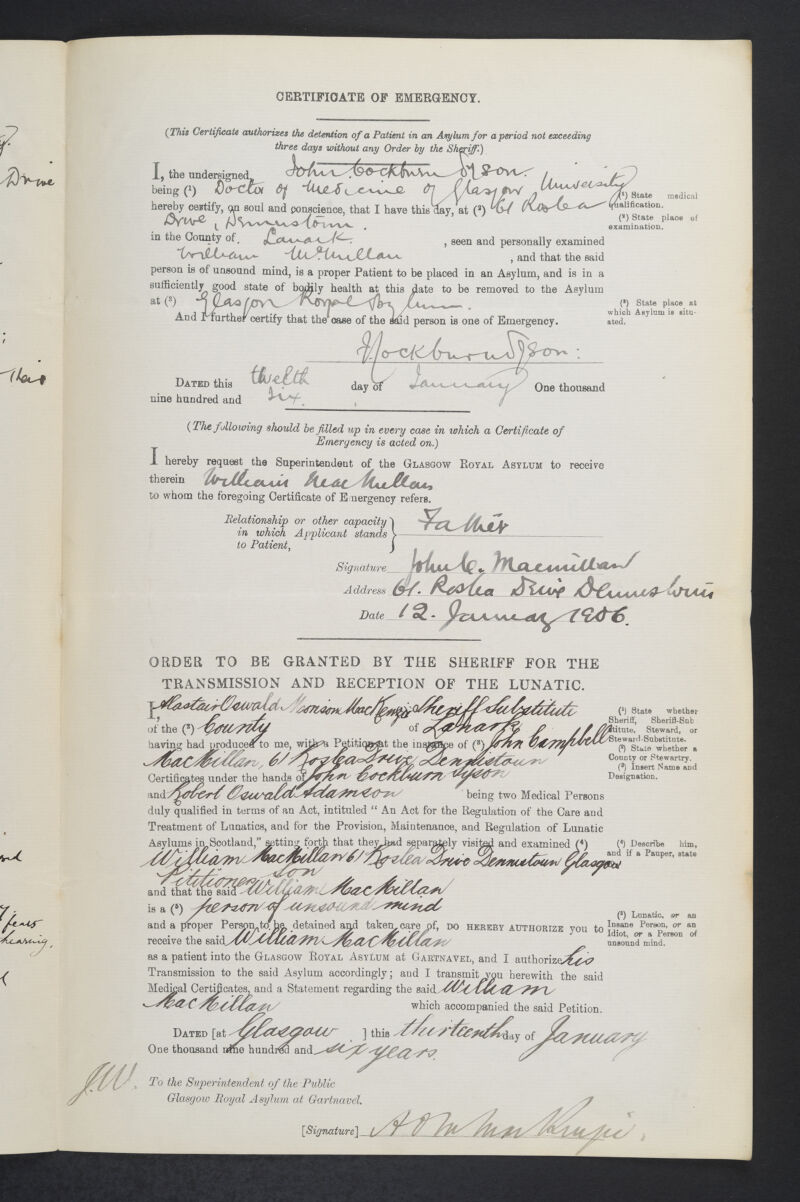 CERTIFICATE OF EMERGENCY.
(This Certificate authorizes the detention of a Patient in an Asylum for a period not exceeding
three days without any Order by the Sheriff.)
I, the undersigned, John Cockburn Tyson.
being (¹) Doctor of Medicine of Glasgow University
hereby certify, on soul and conscience, that I have this day, at (²) 61 Roslea
Drive, Dennistoun.
in the County of Lanark. , seen and personally examined
William McMillan , and that the said
person is of unsound mind, is a proper Patient to be placed in an Asylum, and is in a
sufficiently good state of bodily health at this date to be removed to the Asylum
at (³) Glasgow Royal Asylum.
And I further certify that the case of the said person is one of Emergency.
(¹) State medical
qualification.
(²) State place of
examination.
(³) State place at
which Asylum is situ-
ated.
J Cockburn Tyson:
DATED this twelth day of January One thousand
nine hundred and six.
(The following should be filled up in every case in which a Certificate of
Emergency is acted on.)
I hereby request the Superintendent of the GLASGOW ROYAL ASYLUM to receive
therein William MacMillan
to whom the foregoing Certificate of Emergency refers.
Relationship or other capacity
in which Applicant stands
to Patient, Father
Signature John C. Macmillan
Address 61. Roslea Drive Dennistoun
Date 12. January 1906.
ORDER TO BE GRANTED BY THE SHERIFF FOR THE
TRANSMISSION AND RECEPTION OF THE LUNATIC.
I, Alastair Oswald Morison MacKenzie Sheriff Substitute
of the (²) County of Lanark
having had produced to me, with a Petition at the instance of (³) John Campbell
MacMillan, 61 Roslea Drive Dennistoun
Certificates under the hands of John Cockburn Tyson
and Robert Oswald Adamson being two Medical Persons
duly qualified in terms of an Act, intituled "An Act for the Regulation of the Care and
Treatment of Lunatics, and for the Provision, Maintenance, and Regulation of Lunatic
Asylums in Scotland," setting forth that they had separately visited and examined (⁴)
William MacMillan 61 Roslea Drive Dennistoun Glasgow
Petitioner's son
and that the said William MacMillan
is a (⁵) person of unsound mind
and a proper Person to be detained and taken care of, DO HEREBY AUTHORIZE you to
receive the said William MacMillan
as a patient into the GLASGOW ROYAL ASYLUM AT GARTNAVEL, and I authorize his
Transmission to the said Asylum accordingly; and I transmit you herewith the said
Medical Certificates, and a Statement regarding the said William
MacMillan which accompanied the said Petition.
(¹) State whether
Sheriff, Sheriff-Sub
stitute, Steward, or
Steward-Substitute.
(²) State whether a
County or Stewartry.
(³) Insert Name and
Designation.
(⁴) Describe him,
and if a Pauper, state
(⁵) Lunatic, or an
Insane Person, or an
Idiot, or a Person of
unsound mind.
DATED [at Glasgow ] this thirteenth day of January
One thousand nine hundred and six years.
J.W.
To the Superintendent of the Public
Glasgow Royal Asylum at Gartnavel.
[Signature] A O M MacKenzie.
Drive
their
fears
hearing.